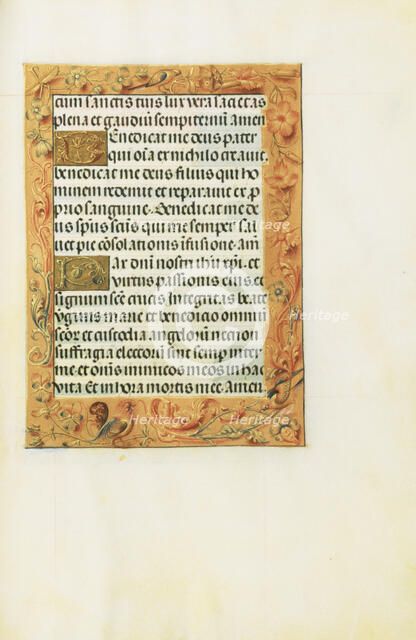 cum sanctis tuis lux vera sacietas
plena et gaudiū sempiternū amen
Benedicat me deus pater
qui oīa ex nichilo creavit.
benedicat me deus filius qui ho
minem redemit et reparavit ex p
prio sanguine. Benedicat me de
us spūs sc̄us qui me semper sal
uet pie cōsolationis īfusione. am̄
Pax dnī nostri ihū xpī. et
virtus passionis eius. et
signum sc̄e crucis. Integritas beate
v̄ginis marie et benedictio omniū
sc̄or et custodia angelorū necnon
suffragia electorū sint semp inter
me et om̄s inimicos meos in hac
vita Et in hora mortis mee. Amen.
Heritage
Heritage
Heritage
Heritage